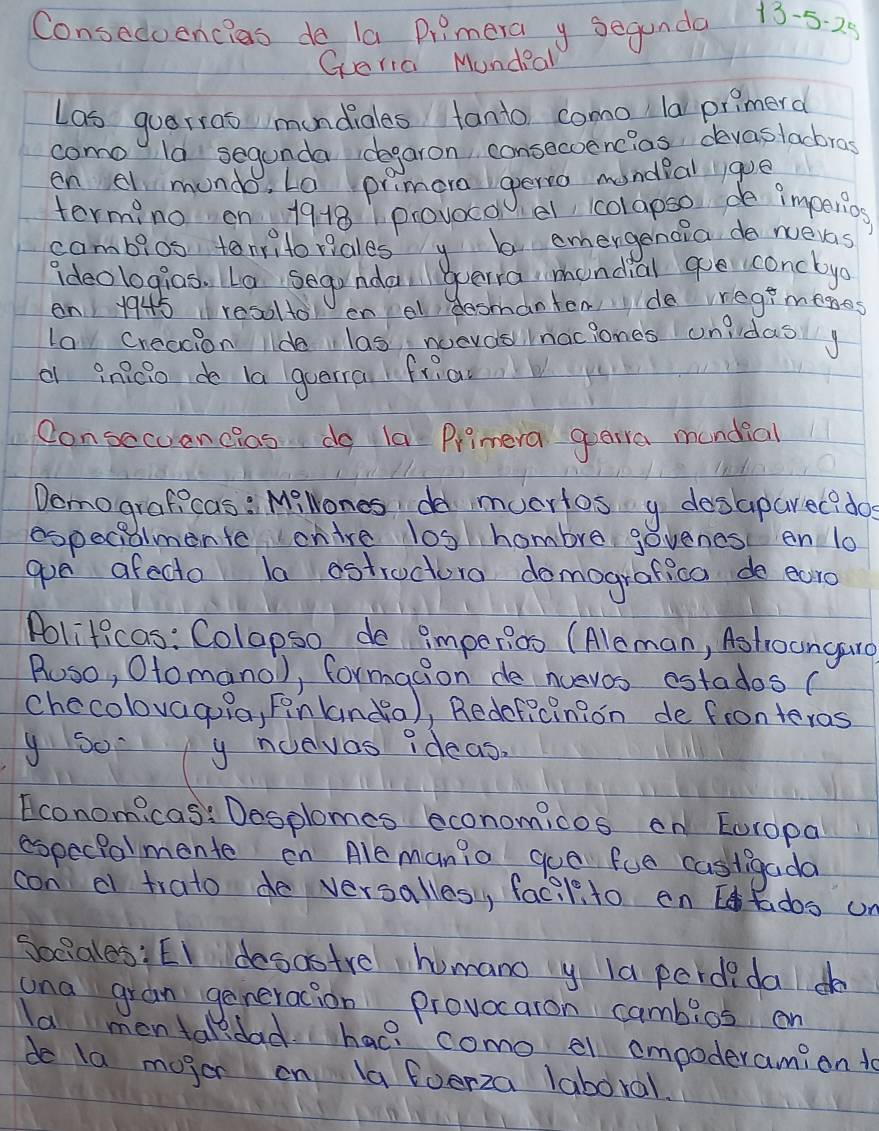 Consecuencias de la Primera y Segunda 13-5-25
Guerra Mundial
Las guerras mundiales tanto como la primera
como la segunda degaron consecuencias devastadoras
en el mundo. La primera gerra mundial que
termino en 1918 provoco el colapso de imperios,
cambios territoriales y la emergencia de nuevas
ideologias. La segunda guerra mundial que concluyo
en 1945 resulto en el desmanten de regimenes
la creacion de las nuevas naciones unidas y
el inicio de la guerra fria.
Consecuencias de la Primera guerra mundial
Demograficas: Millones de muertos y desaparecidos
especialmente entre los hombre jóvenes en lo
que afecto la estructura demografica de euro
Politicas: Colapso de imperios (Aleman, Astroungaro,
Ruso, Otomano), formacion de nuevos estados (
checolovaquia, Finlandia), Redeficinion de fronteras
y so- y nuevas ideas.
Economicas: Desplomes economicos en Europa
especialmente en Alemania que fue castigada
con el trato de versalles, facilito en Estados un
Sociales: El desastre humano y la perdida de
una gran generacion provocaron cambios en
la mentalidad. haci como el empoderamiento
de la mojer en la fuerza laboral.